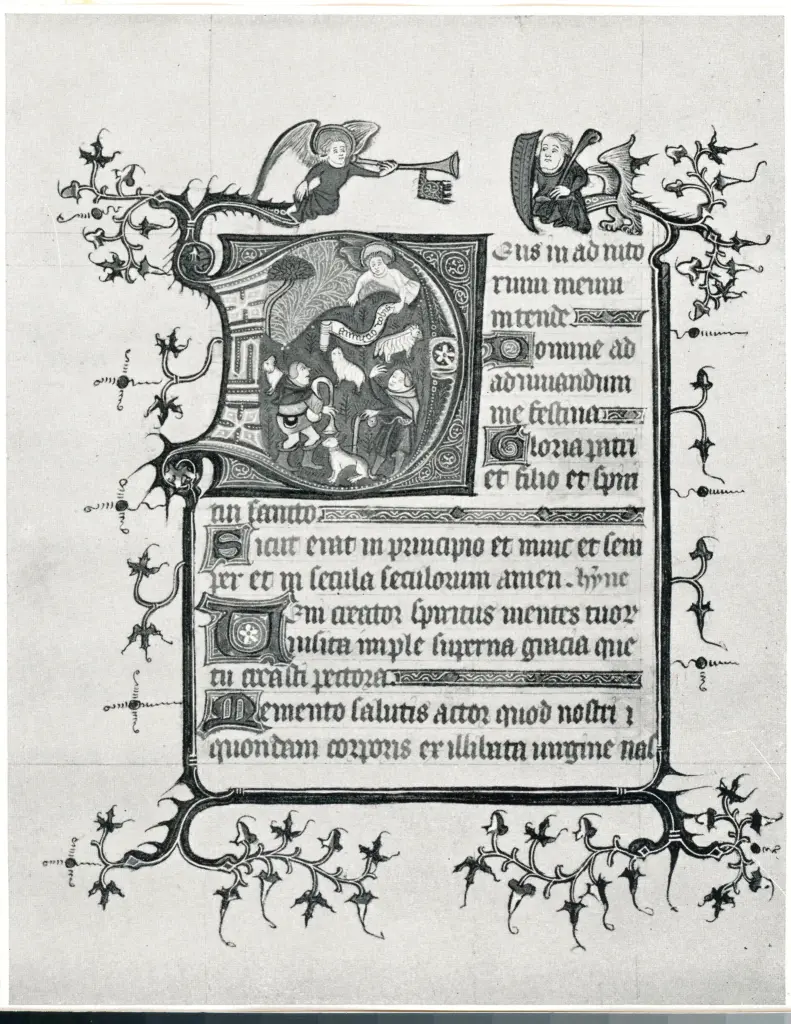 DEus in adiuto
rium meum
intende
Domine ad
adiuuandum
me festina
Gloria patri
et filio et spiri
tui sancto
Sicut erat in principio et nunc et sem
per et in secula seculorum amen. hyne
VEni creator spiritus mentes tuor
uisita imple superna gracia que
tu creasti pectora
Memento salutis actor quod nostri
quondam corporis ex illibata uirgine nas